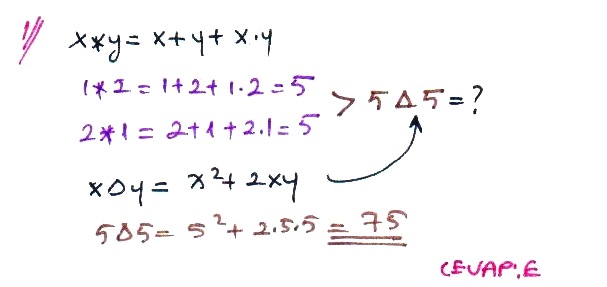 1) x*y = x+y+x.y
1*2 = 1+2+1.2 = 5
> 5Δ5 = ?
2*1 = 2+1+2.1 = 5
xΔy = x²+2xy
5Δ5 = 5²+2.5.5 = 75
CEVAP:E